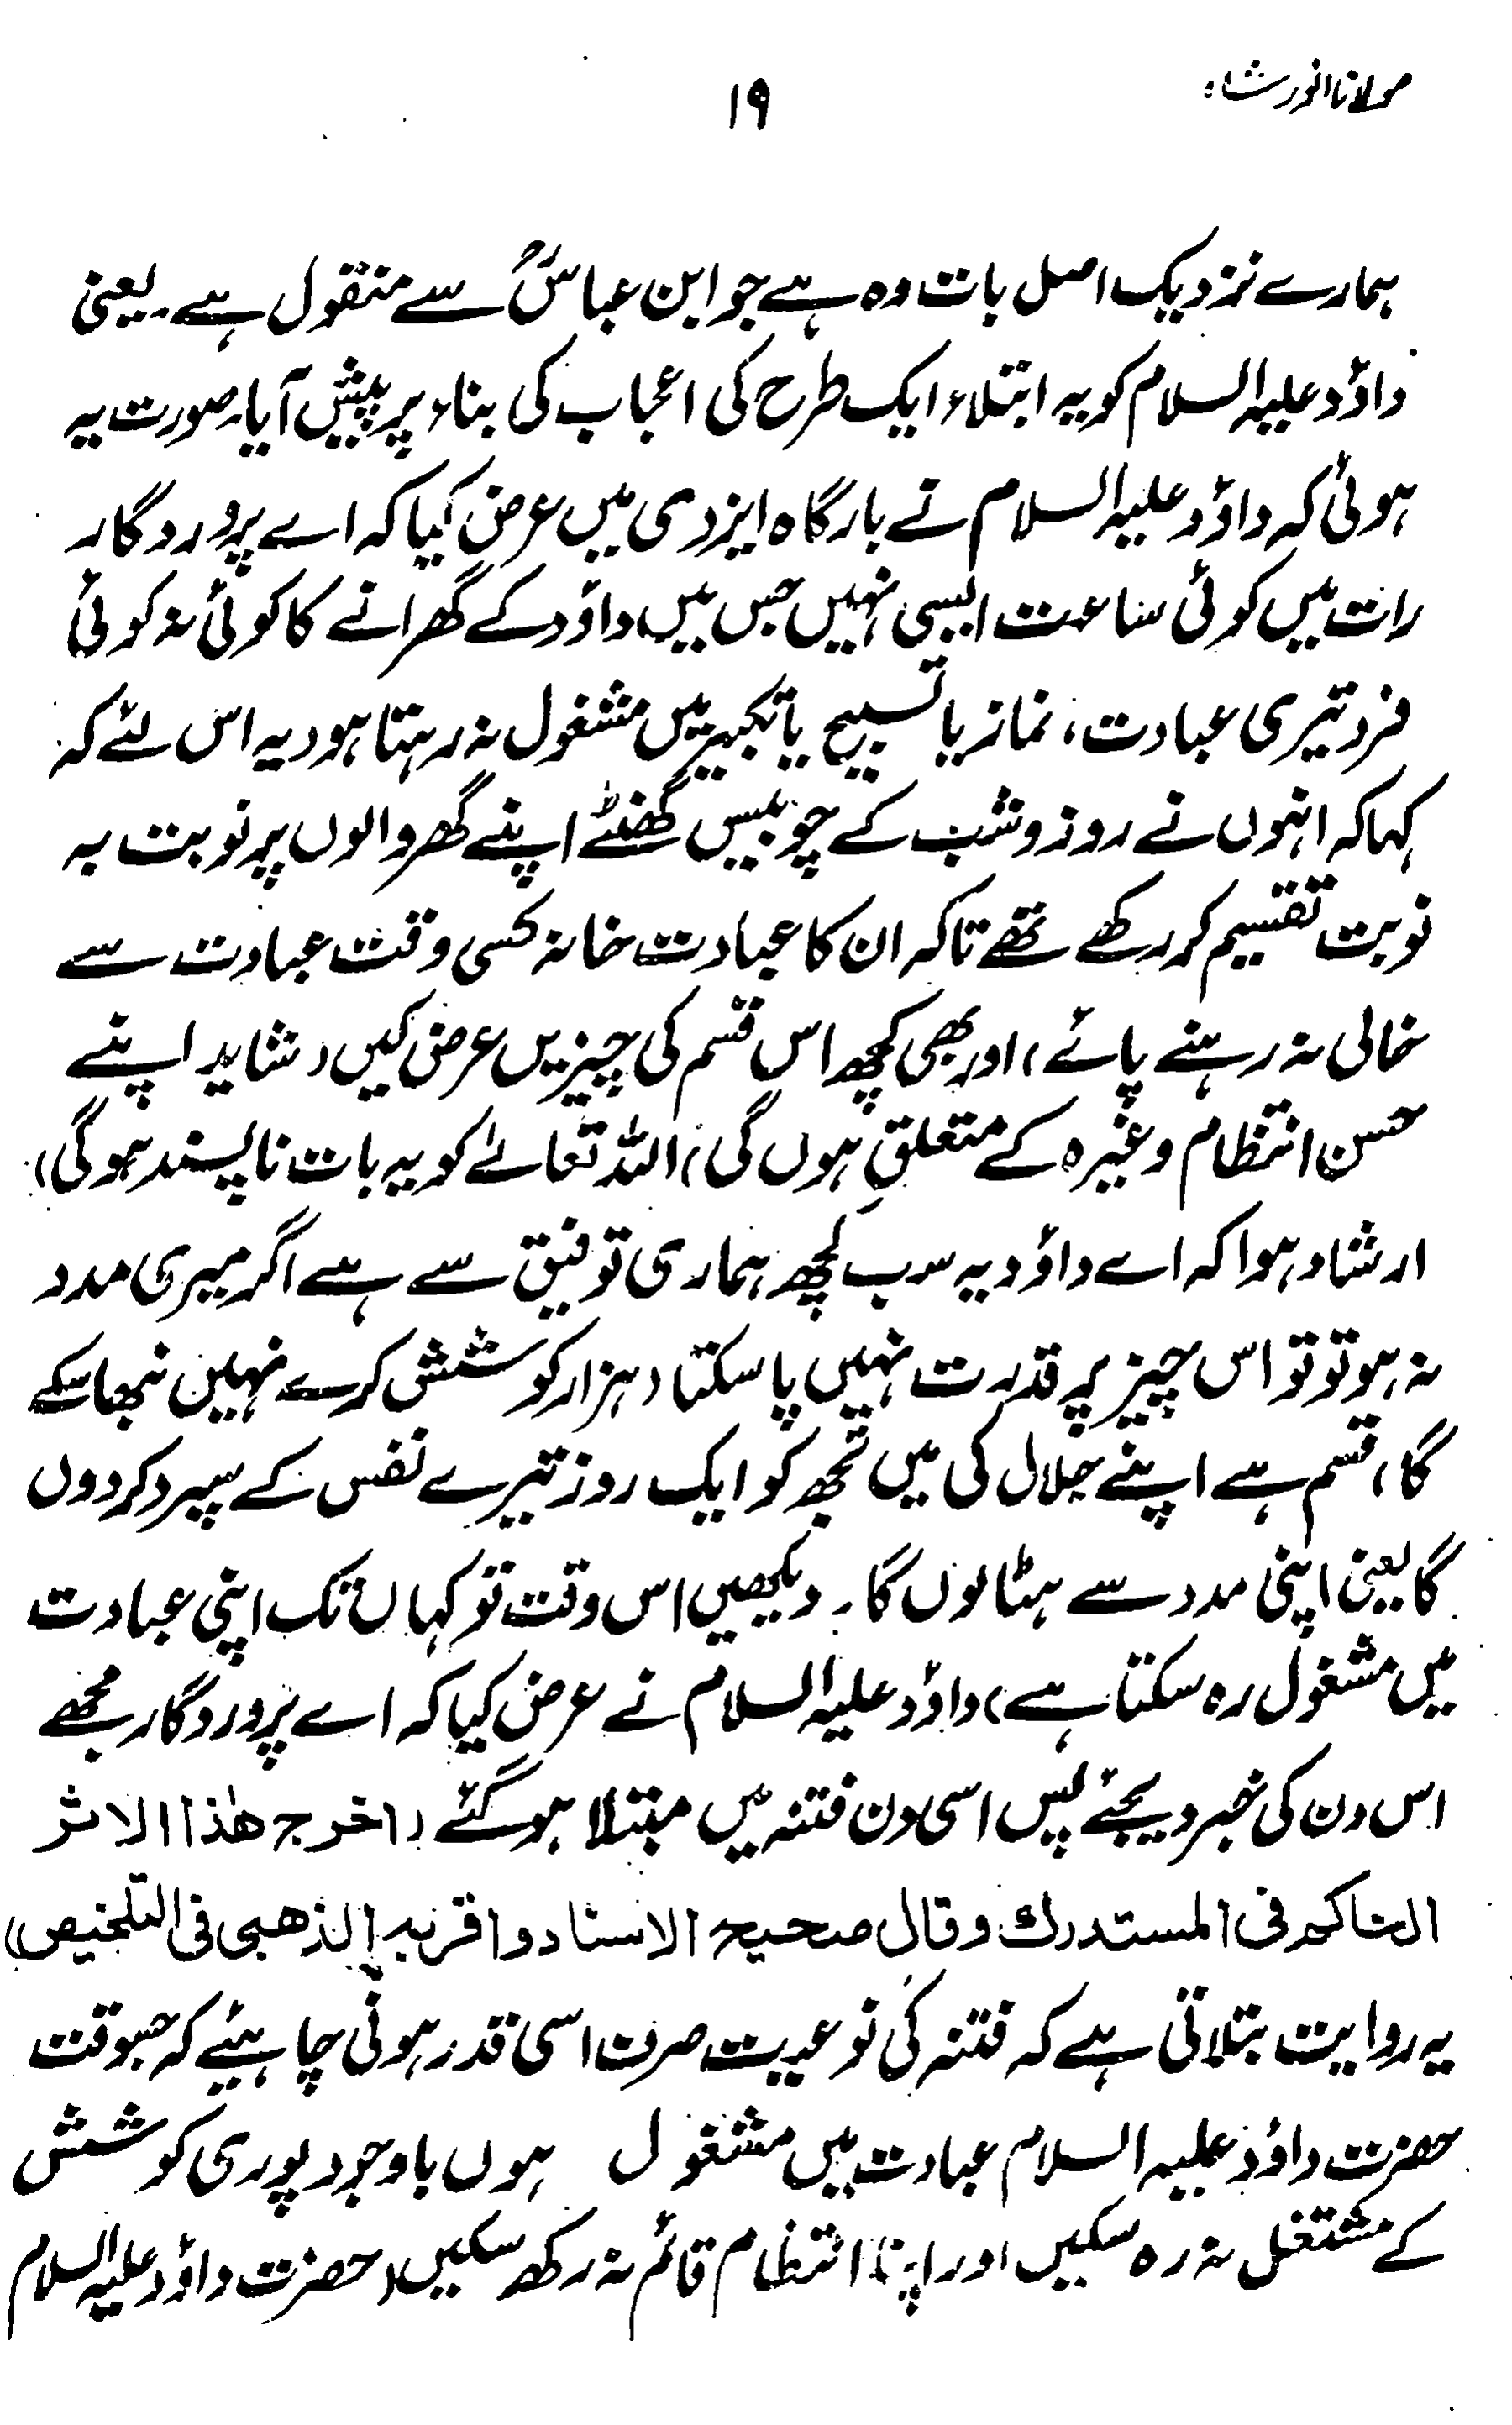 مولانا انور شاہ
۱۹
ہمارے نزدیک اصل بات وہ ہے جو ابن عباسؓ سے منقول ہے۔ یعنی
داؤد علیہ السلام کو یہ ابتلاء ایک طرح کی اعجاب کی بناء پر پیش آیا۔ صورت یہ
ہوئی کہ داؤد علیہ السلام نے بارگاہ ایزدی میں عرض کیا کہ اے پروردگار
رات میں کوئی ساعت ایسی نہیں جس میں داؤد کے گھرانے کا کوئی نہ کوئی
فرد تیری عبادت، نماز یا تسبیح یا تکبیر میں مشغول نہ رہتا ہو (یہ اس لئے کہ
کہا کہ انہوں نے روز و شب کے چوبیس گھنٹے اپنے گھر والوں پر نوبت بہ
نوبت تقسیم کر رکھے تھے تاکہ ان کا عبادت خانہ کسی وقت عبادت سے
خالی نہ رہنے پائے)، اور بھی کچھ اس قسم کی چیزیں عرض کیں (شاید اپنے
حسن انتظام وغیرہ کے متعلق ہوں گی) اللہ تعالےٰ کو یہ بات ناپسند ہوگی،
ارشاد ہوا کہ اے داؤد یہ سب کچھ ہماری توفیق سے ہے اگر میری مدد
نہ ہو تو تو اس چیز پر قدرت نہیں پا سکتا (ہزار کوشش کرے نہیں نبھا سکے
گا، قسم ہے اپنے جلال کی میں تجھ کو ایک روز تیرے نفس کے سپرد کردوں
گا یعنی اپنی مدد سے ہٹا لوں گا۔ دیکھیں اس وقت تو کہاں تک اپنی عبادت
میں مشغول رہ سکتا ہے) داؤد علیہ السلام نے عرض کیا کہ اے پروردگار مجھے
اس دن کی خبر دیجئے پس اسی دن فتنہ میں مبتلا ہو گئے (اخرج ھٰذا الاثر
الحاکم فی المستدرك وقال صحیح الاسناد واقر بہ الذھبی فی التلخیص)
یہ روایت بتلاتی ہے کہ فتنہ کی نوعیت صرف اسی قدر ہونی چاہیئے کہ جسوقت
حضرت داؤد علیہ السلام عبادت میں مشغول ہوں باوجود پوری کوشش
کے مشتغل نہ رہ سکیں اور اپنا انتظام قائم نہ رکھ سکیں (حضرت داؤد علیہ السلام